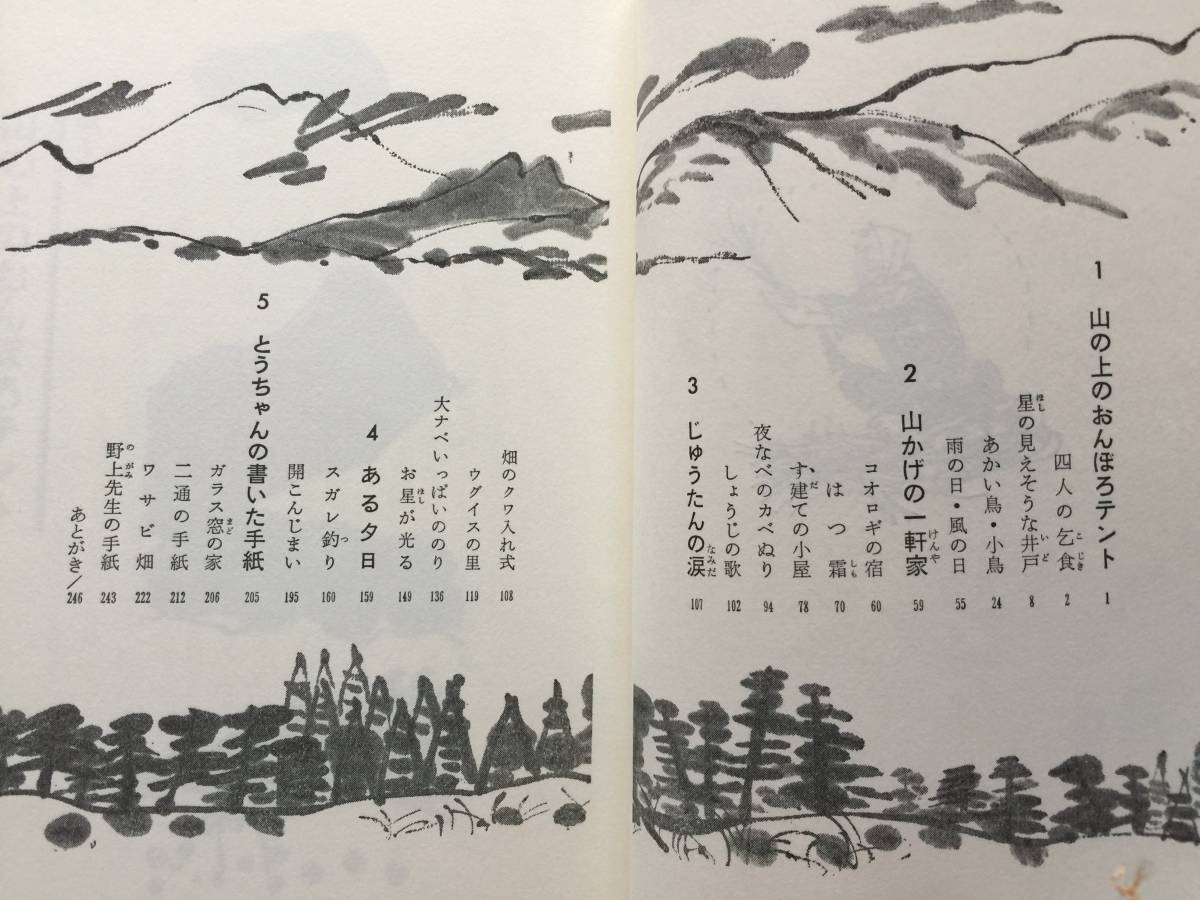 1 山の上のおんぼろテント 1
四人の乞食 2
星の見えそうな井戸 8
あかい鳥・小鳥 24
雨の日・風の日 55
2 山かげの一軒家 59
コオロギの宿 60
はつ霜 70
す建ての小屋 78
夜なべのカベぬり 94
しょうじの歌 102
3 じゅうたんの涙 107
畑のクワ入れ式 108
ウグイスの里 119
大ナベいっぱいののり 136
お星が光る 149
4 ある夕日 159
スガレ釣り 160
開こんじまい 195
5 とうちゃんの書いた手紙 205
ガラス窓の家 206
二通の手紙 212
ワサビ畑 222
野上先生の手紙 243
あとがき/246